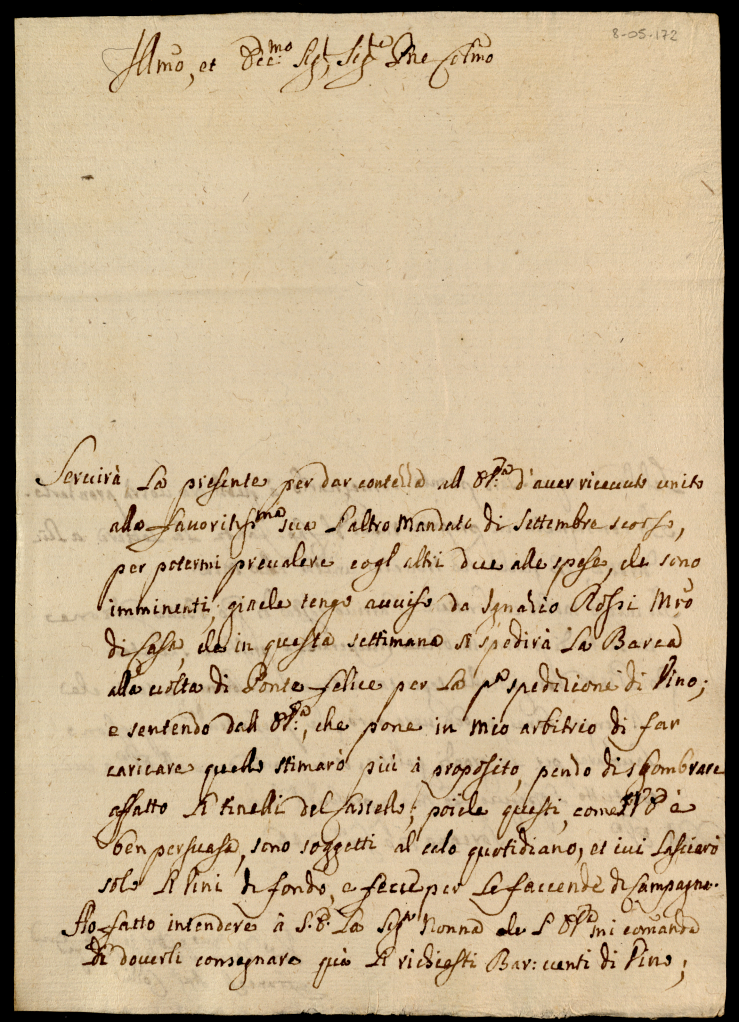 8-05-172
Illmo, et Ecc:mo Sigr, Sigre Pne Colmo
Seruirà La presente per dar contezza all' E.V.ra d'auer riceuuto unito
alla fauoritiss.ma sua L'altro Mandato di Settembre scorso,
per potermi preualere cogl'altri due alle spese, che sono
imminenti, giache tengo auuiso da Ignazio Rossi Mro
di Casa, che in questa settimana si spedirà La Barca
alla uolta di Ponte felice per La pa spedizione di Vino;
e sentendo dall' che pone in mio arbitrio di far
caricare quello stimarò più à proposito, penso di sgombrare
affatto Li tinelli del Castello; poiche questi, come è
ben persuasa, sono soggetti al calo quotidiano, et iui Lasciarò
solo Li Vini di fondo, e fecce per Le faccende di Campagna.
Ho fatto intendere à S.E. La Sigra Nonna che L' mi comanda
di douerli consegnare quà Li richiesti Bar: uenti di Vino;